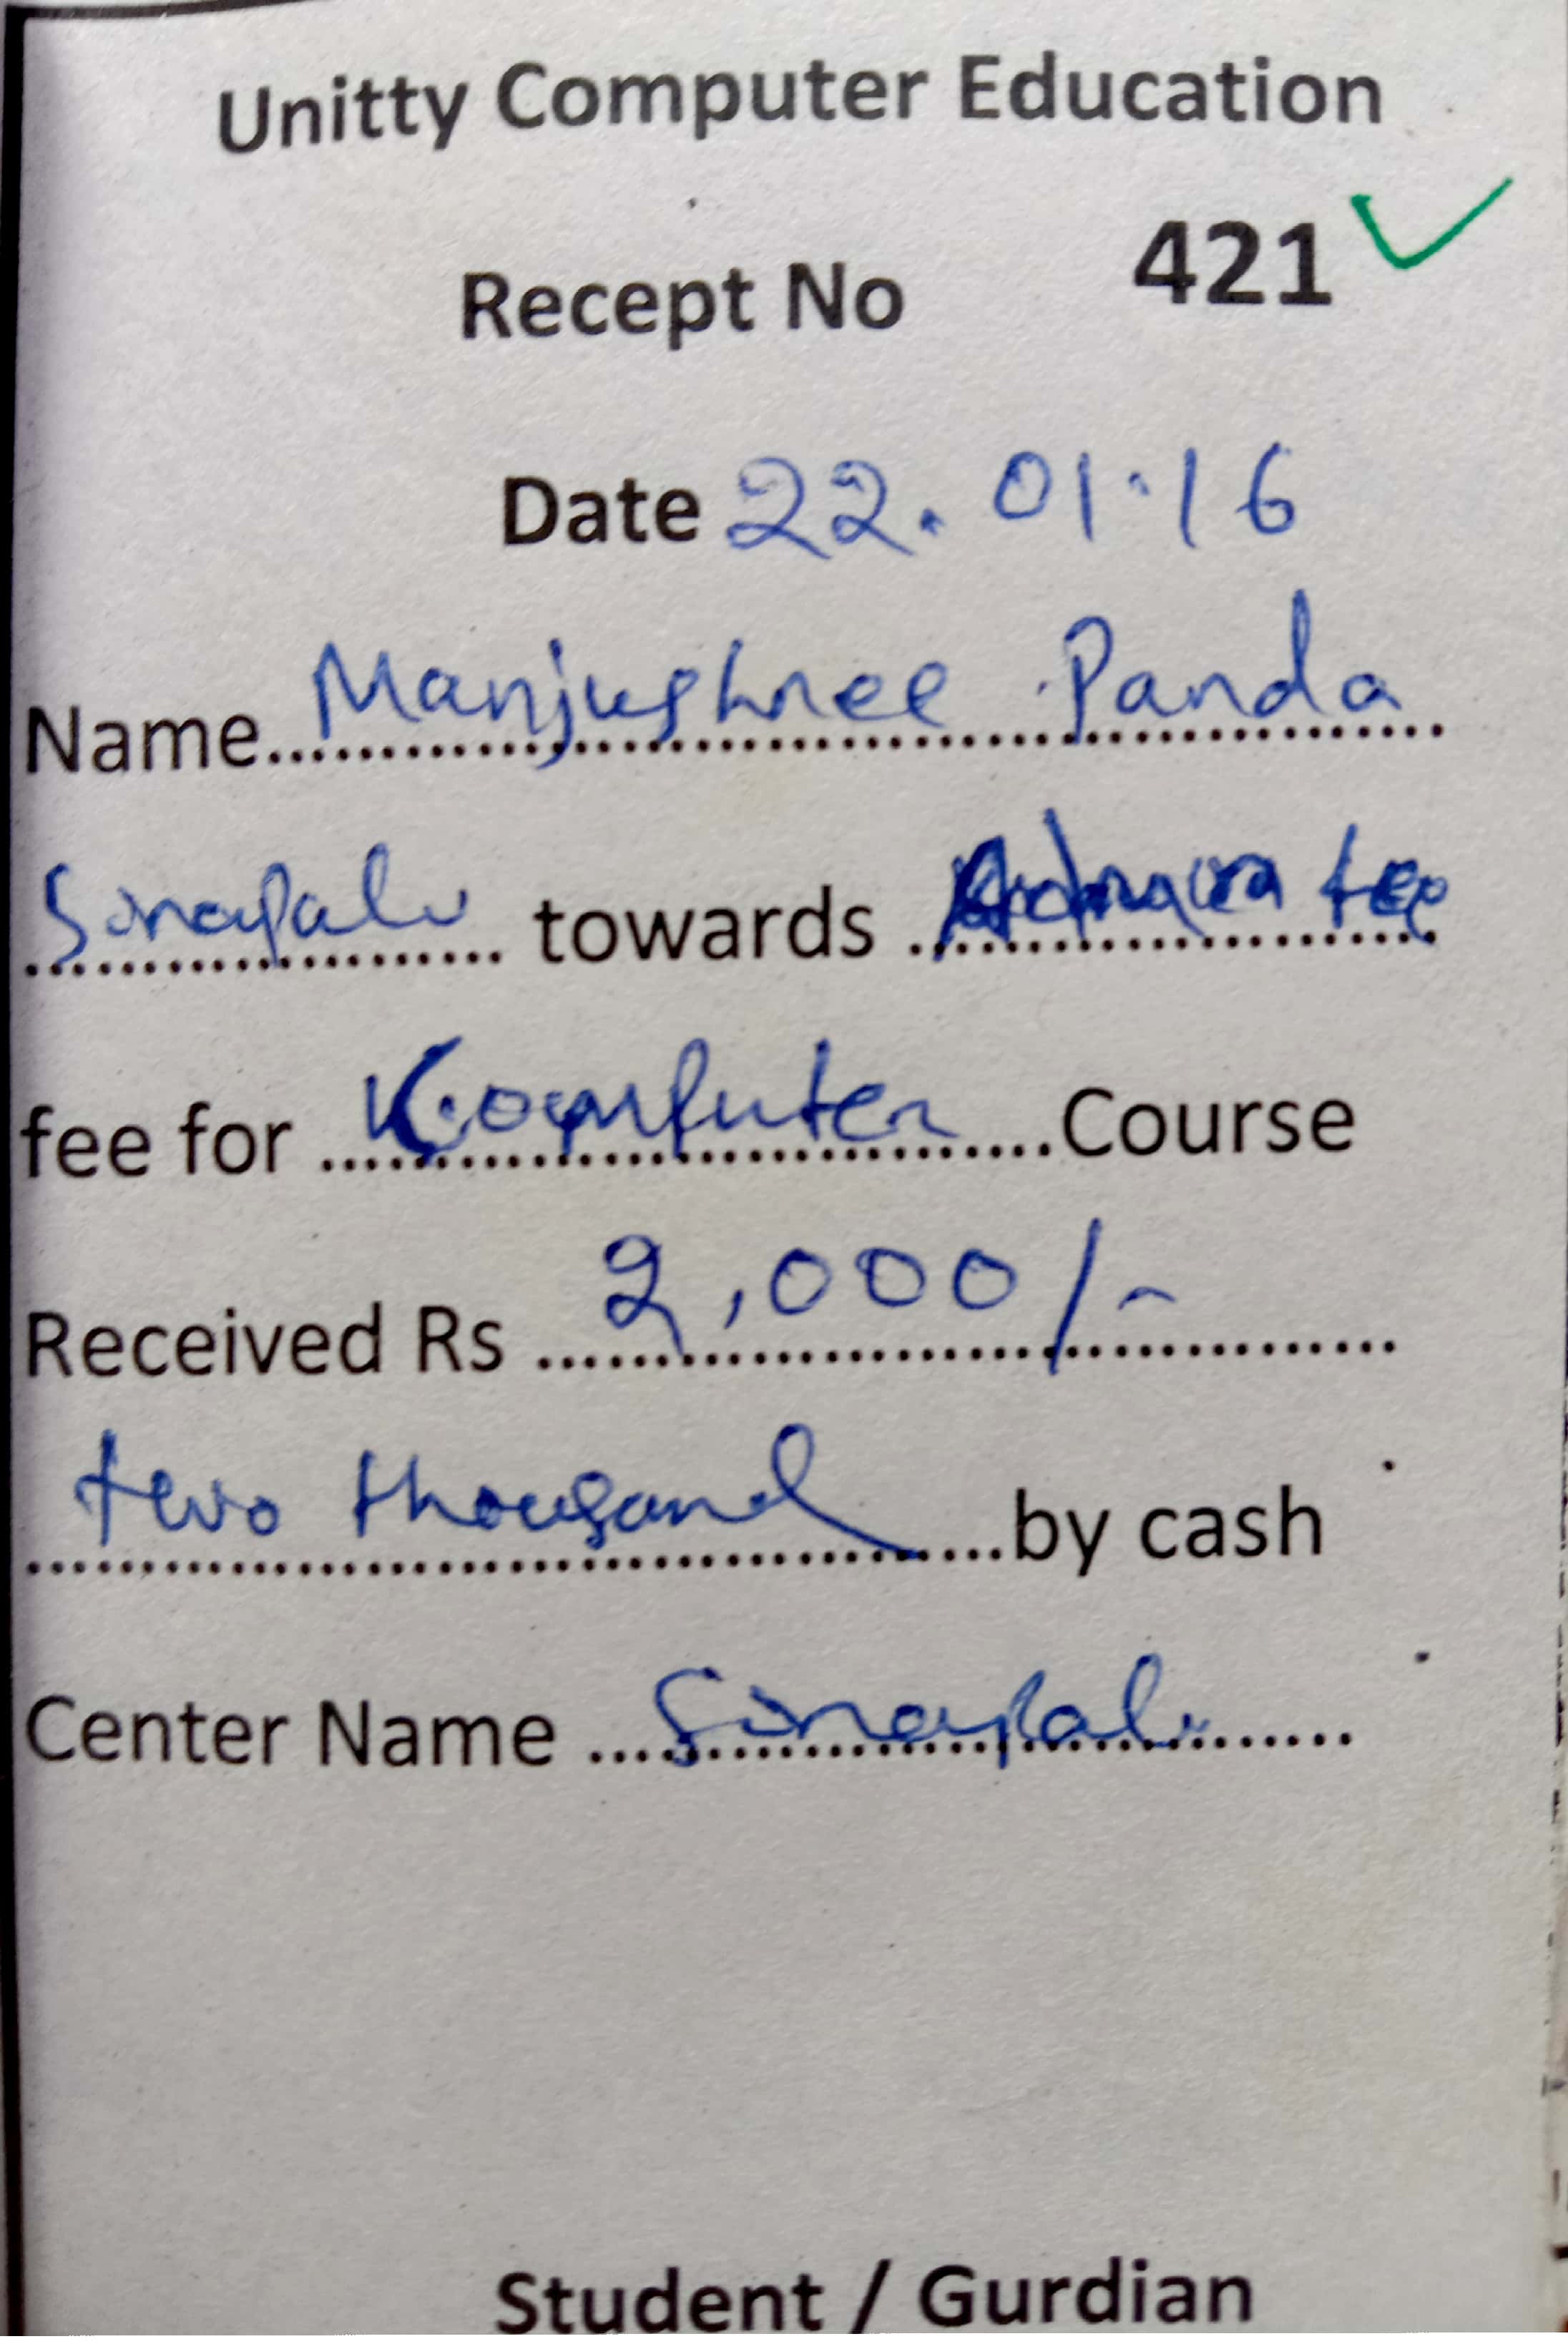 Unitty Computer Education
Recept No 421
Date 22.01.16
Name Manjushree Panda
Sinapali towards fee
fee for Computer Course
Received Rs 2,000/-
two thousand by cash
Center Name Sinapali
Student / Gurdian